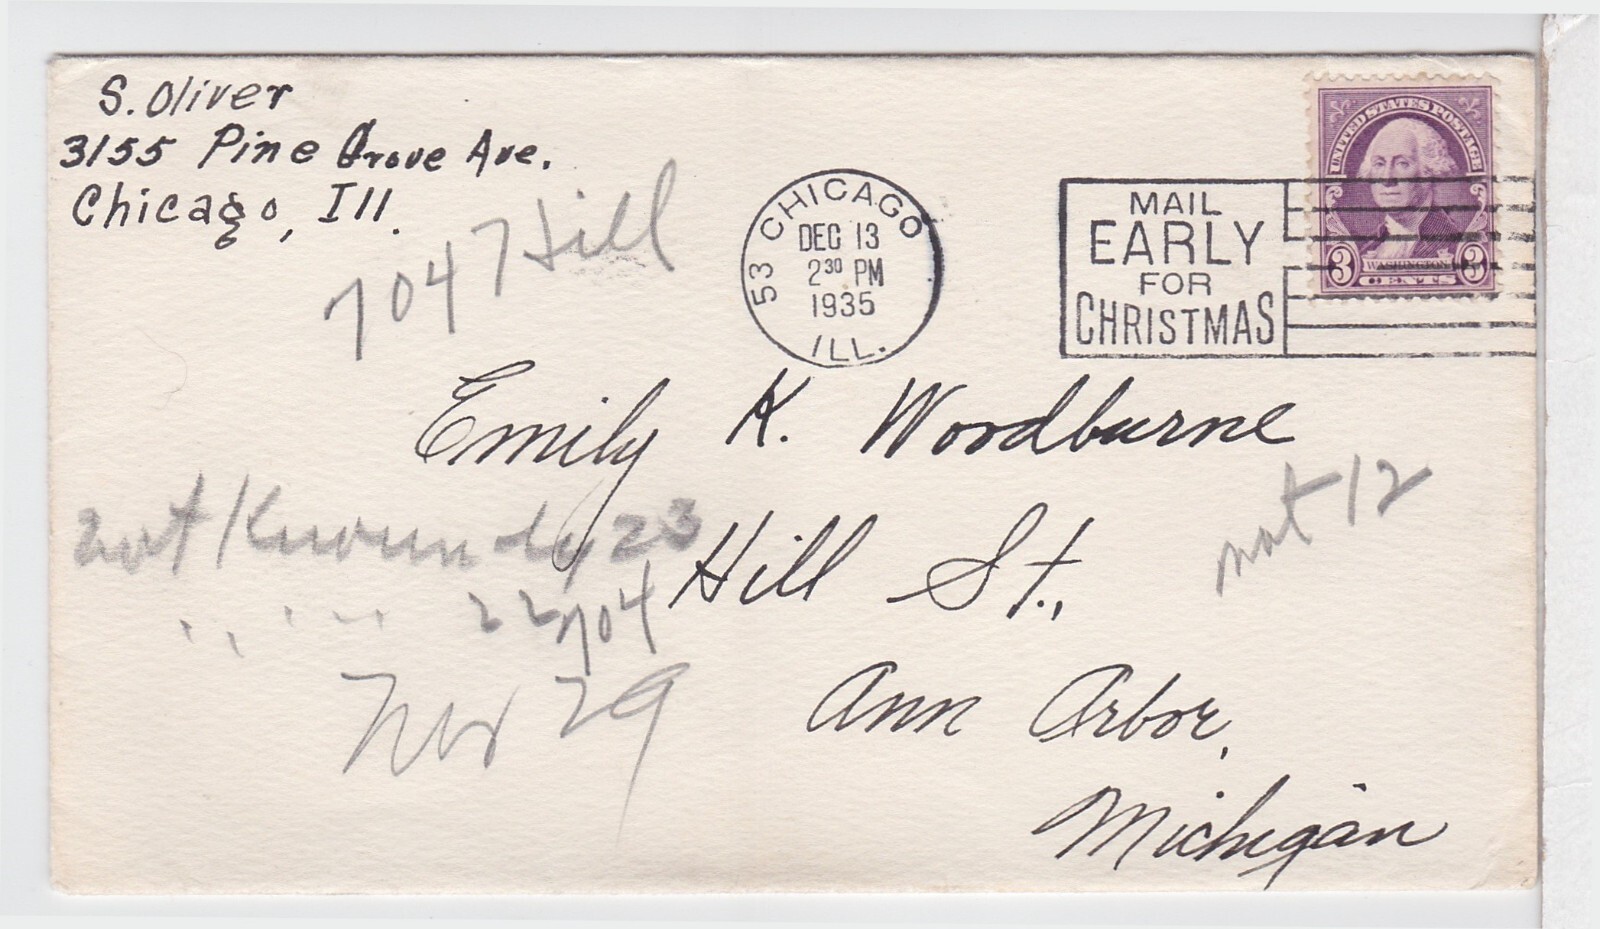 S. Oliver
3155 Pine Grove Ave.
Chicago, Ill.
704 7 Hill
53 CHICAGO
DEC 13
2 30 PM
1935
ILL.
MAIL
EARLY
FOR
CHRISTMAS
UNITED STATES POSTAGE
3 WASHINGTON 3
CENTS
Emily K. Woodburne
Hill St.,
Ann Arbor,
Michigan
not 12
not Known by 23
" " " 22
704
29